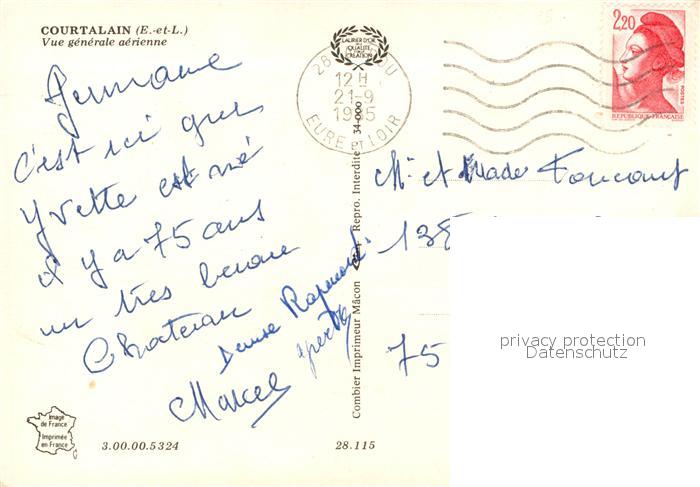 COURTALAIN (E.-et-L.)
Vue générale aérienne
LAURIER D'OR
QUALITÉ
CRÉATION
28
12 H
21-9
1985
EURE ET LOIR
2,20
POSTES
REPUBLIQUE FRANÇAISE
Germaine
c'est ici que
Yvette est né
il y a 75 ans
un très beau
Chateau
Denise Raymond
Yvette
Marcel
Mr et Made Foucault
138
75
Combier Imprimeur Mâcon Repro. Interdite 34-000
privacy protection
Datenschutz
Image
de France
Imprimée
en France
3.00.00.5324
28.115